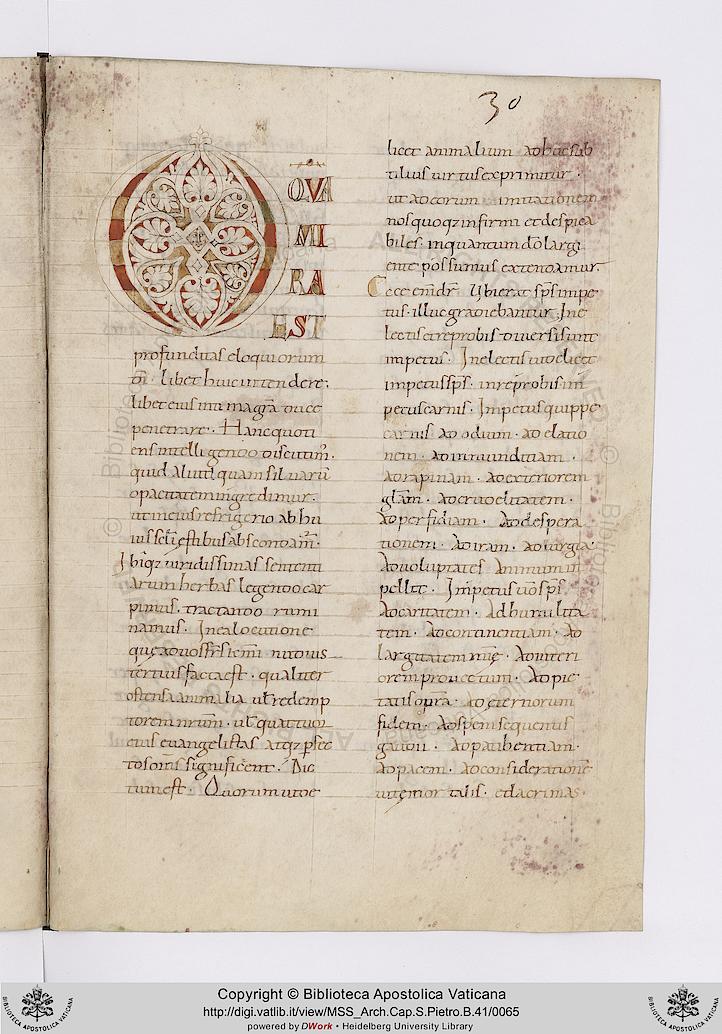 30
OQVA
MI
RA
EST
profunditas eloquiorum
dī · libet huic intendere;
libet eius intima gr̄a duce
penetrare · Hanc quoti
ens intelligendo discutim̄ ·
quid aliud quam siluarū
opacitatem ingredimur ·
ut in eius refrigerio ab hu
ius sc̄li ęstibus abscondam̄ ·
Ibiq; uiridissimas sententi
arum herbas legendo car
pimus · tractando rumi
namus · In ea locutione
quę ad uos fr̄s
tertius facta est · qualiter
ostensa animalia ut̄ redemp
torem nr̄um · ut̄ quattuor
eius euangelistas atq; p̄fec
tos om̄s significent · Dic
tum est · Quorum uide
licet animalium adhuc sub
tilius uirtus exprimitur ·
ut ad eorum imitationem
nos quoq; infirmi et despica
biles · in quantum dn̄o largi
ente possumus extendamur ·
Ecce enī dr̄ · Ubi erat sp̄s impe
tus · illuc gradiebantur · In e
lectis et reprobis diuersi sunt
impetus · In electis uidelicet
impetus sp̄s · in reprobis im
petus carnis · Impetus quippe
carnis ad odium · ad elatio
nem · ad inmunditiam ·
ad rapinam · ad exteriorem
gl̄am · ad crudelitatem ·
ad perfidiam · Ad despera
tionem · ad iram · ad iurgia ·
ad uoluptates animum in
pellit · Impetus uō sp̄s ·
ad caritatem · ad humilita
tem · ad continentiam · ad
largitatem mīę · ad interi
orem prouectum · ad pie
tatis opera · ad ęternorum
fidem · ad spem sequentis
gaudii · ad patientiam ·
ad pacem · ad considerationē
uitę mortalis · et lacrimas ·
Copyright © Biblioteca Apostolica Vaticana
http://digi.vatlib.it/view/MSS_Arch.Cap.S.Pietro.B.41/0065
powered by DWork • Heidelberg University Library
BIBLIOTECA APOSTOLICA VATICANA
BIBLIOTECA APOSTOLICA VATICANA